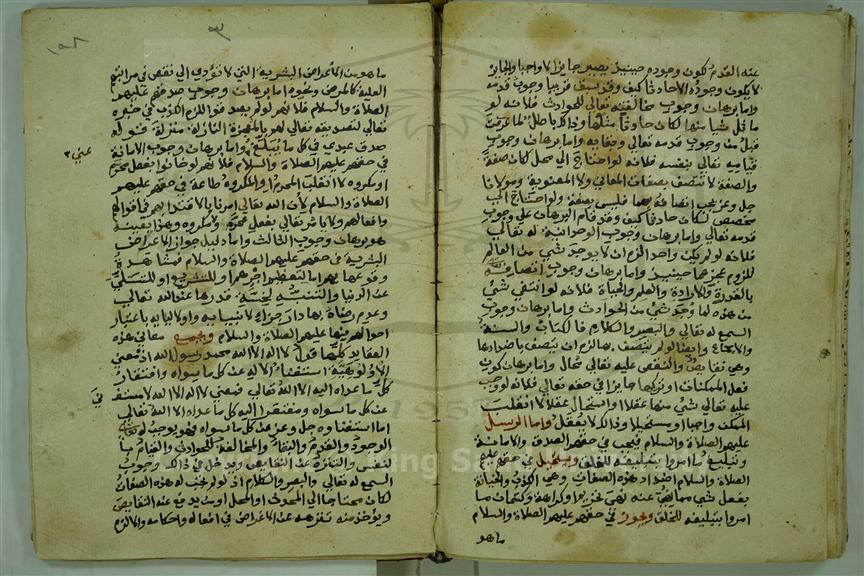 عنه القدم لكون وجوده حينئذ يصير جايزا لا واجبا والجايز
لا يكون وجوده الا حادثا كيف وقد سبق قريبا وجوب قدمه
واما برهان وجوب مخالفته تعالى للحوادث فلانه لو
ماثل شيا منها لكان حادثا مثلها وذلك باطل لما عرفت
قبل من وجوب قدمه تعالى وبقايه واما برهان وجوب
قيامه تعالى بنفسه فلانه لو احتاج الى محل لكان صفة
والصفة لا تتصف بصفات المعاني ولا المعنوية ومولانا
جل وعز يجب اتصافه بهما فليس بصفة ولو احتاج الى
مخصص لكان حادثا كيف وقد قام البرهان على وجوب
قدمه تعالى واما برهان وجوب الوحدانية له تعالى
فلانه لو لم يكن واحد الزم ان لا يوجد شي من العالم
للزوم عجزه حينئذ واما برهان وجوب اتصافه
بالقدرة والارادة والعلم والحياة فلانه لو انتفي شي
من هذه لما وجد شي من الحوادث واما برهان وجوب
السمع له تعالى والبصر والكلام فالكتاب والسنة
والاجماع وايضا لو لم يتصف بها لزم ان يتصف باضدادها
وهي نقايص والنقص عليه تعالى محال واما برهان كون
فعل الممكنات او تركها جايزا في حقه تعالى فلانه لو وجب
عليه تعالى شي منها عقلا او استحال عقلا لانقلب
الممكن واجبا او مستحيلا وذلك لا يعقل واما الرسل
عليهم الصلاة والسلام فيجب في حقهم الصدق والامانة
وتبليغ ما امروا بتبليغه للخلق ويستحيل في حقهم عليهم
الصلاة والسلام اضداد هذه الصفات وهي الكذب والخيانة
بفعل شي مما نهوا عنه نهي تحريم او كراهة وكتمان ما
امروا بتبليغه للخلق ويجوز في حقهم عليهم الصلاة والسلام
ما هو
١٩٨
ما هو من الاعراض البشرية التي لا تؤدي الى نقص في مراتبهم
العلية كالمرض ونحوه اما برهان وجوب صدقهم عليهم
الصلاة والسلام فلانهم لو لم يصدقوا للزم الكذب في خبره
تعالى لتصديقه تعالى لهم بالمعجزة النازلة منزلة قوله
صدق عبدي في كل ما يبلغ واما برهان وجوب الامانة
عني
في حقهم عليهم الصلاة والسلام فلانهم لو خانوا بفعل محرم
او مكروه لانقلب المحرم او المكروه طاعة في حقهم عليهم
الصلاة والسلام لان الله تعالى امرنا بالاقتداء بهم في اقوالهم
وافعالهم ولا يامر تعالى بفعل محرم ولا مكروه وهذا بعينه
هو برهان وجوب الثالث واما دليل جواز الاعراض
البشرية في حقهم عليهم الصلاة والسلام فمشاهدة
وقوعها بهم اما لتعظيم اجرهم او للتشريع او للتسلي
عن الدنيا والتنبيه لخسة قدرها عند الله تعالى
وعدم رضاه بها دار جزاء لانبيايه واوليايه باعتبار
احوالهم فيها عليهم الصلاة والسلام ويجمع معاني هذه
العقايد كلها قول لا اله الا الله محمد رسول الله اذ معنى
الالوهية استغناء الاله عن كل ما سواه وافتقار
كل ما عداه اليه الا الله تعالى فمعنى لا اله الا الله لا مستغني
عن كل ما سواه ومفتقر اليه كل ما عداه الا الله تعالى
اما استغناوه جل وعز عن كل ما سواه فهو يوجب له تعالى
الوجود والقدم والبقاء والمخالفة للحوادث والقيام با
لنفس والتنزه عن النقايص ويدخل في ذلك وجوب
السمع له تعالى والبصر والكلام اذ لو لم تجب له هذه الصفات
لكان محتاجا الى المحدث او المحل او من يدفع عنه النقايص
ويؤخذ منه تنزهه عن الاغراض في افعاله واحكامه والا لزم